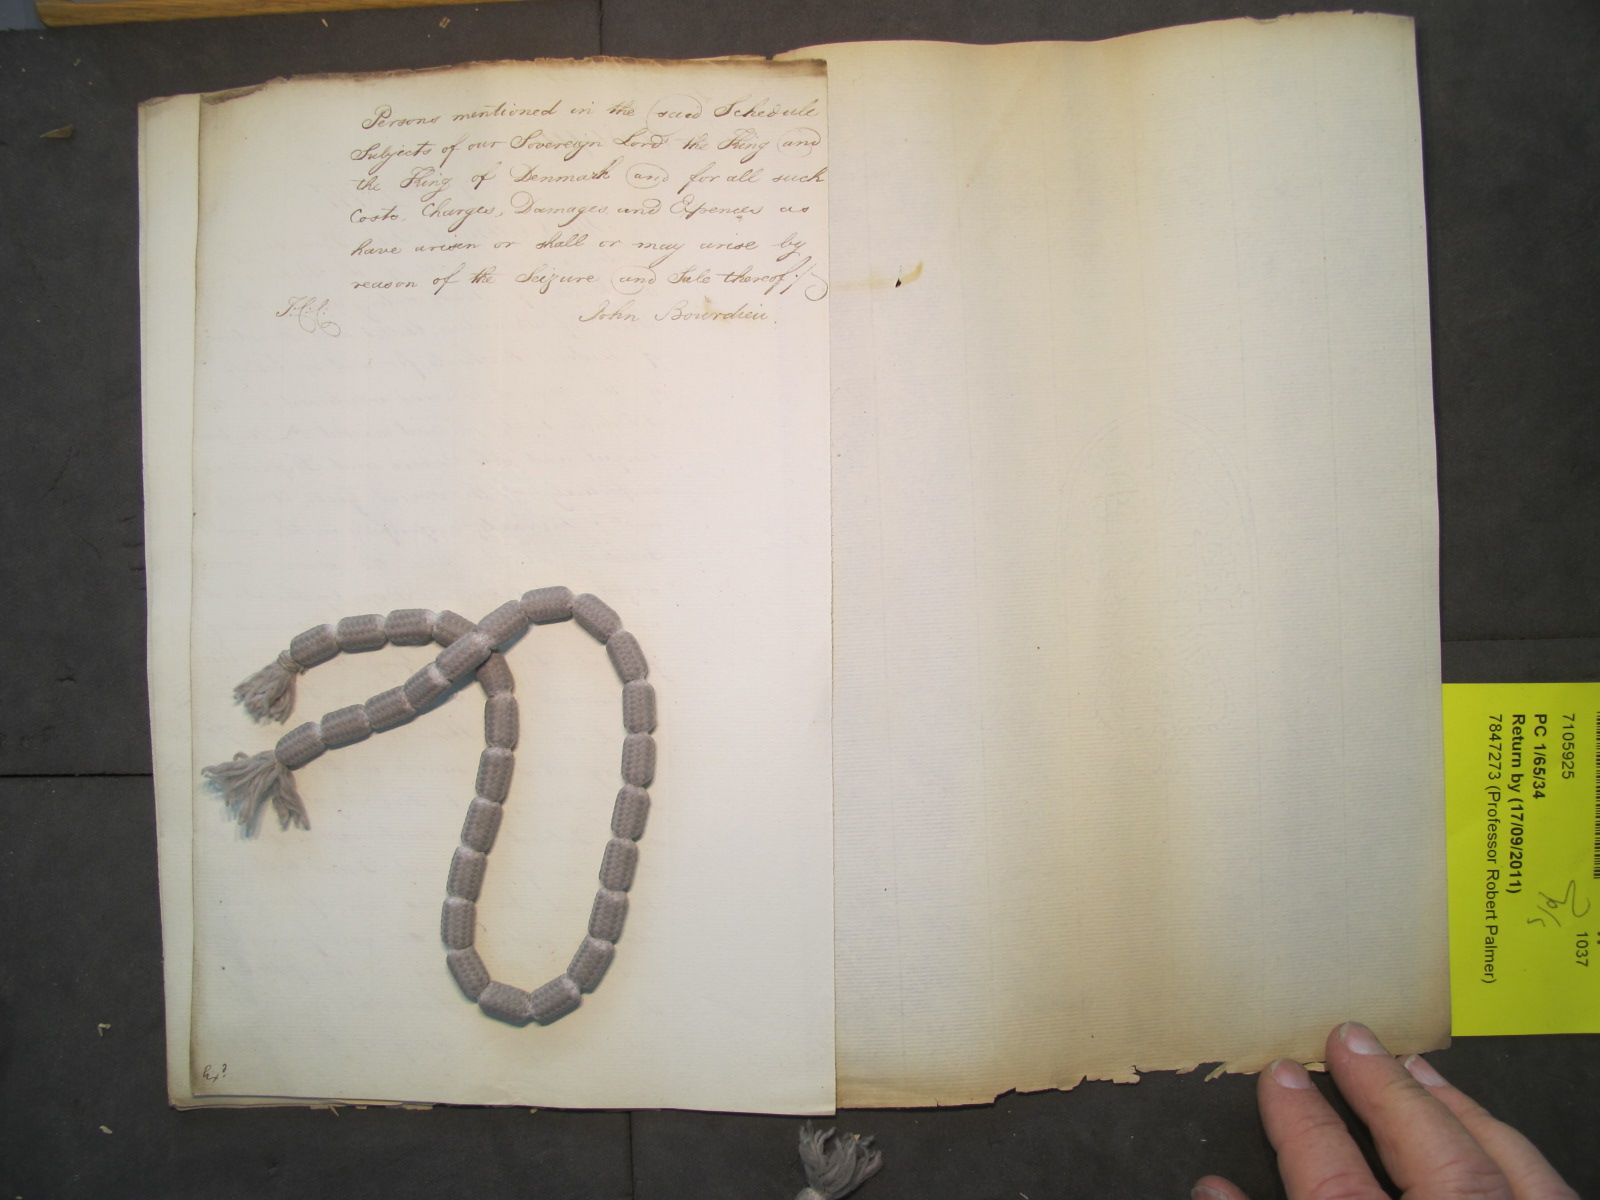 Persons mentioned in the said Schedule
Subjects of our Sovereign Lord the King and
the King of Denmark and for all such
Costs, Charges, Damages and Expences as
have arisen or shall or may arise by
reason of the Seizure and Sale thereof;
John Bourdieu.
7105925
1037
PC 1/65/34
Return by (17/09/2011)
7847273 (Professor Robert Palmer)